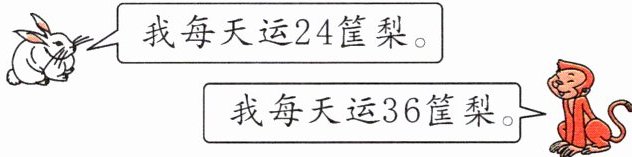 我每天运24筐梨。
我每天运36筐梨。